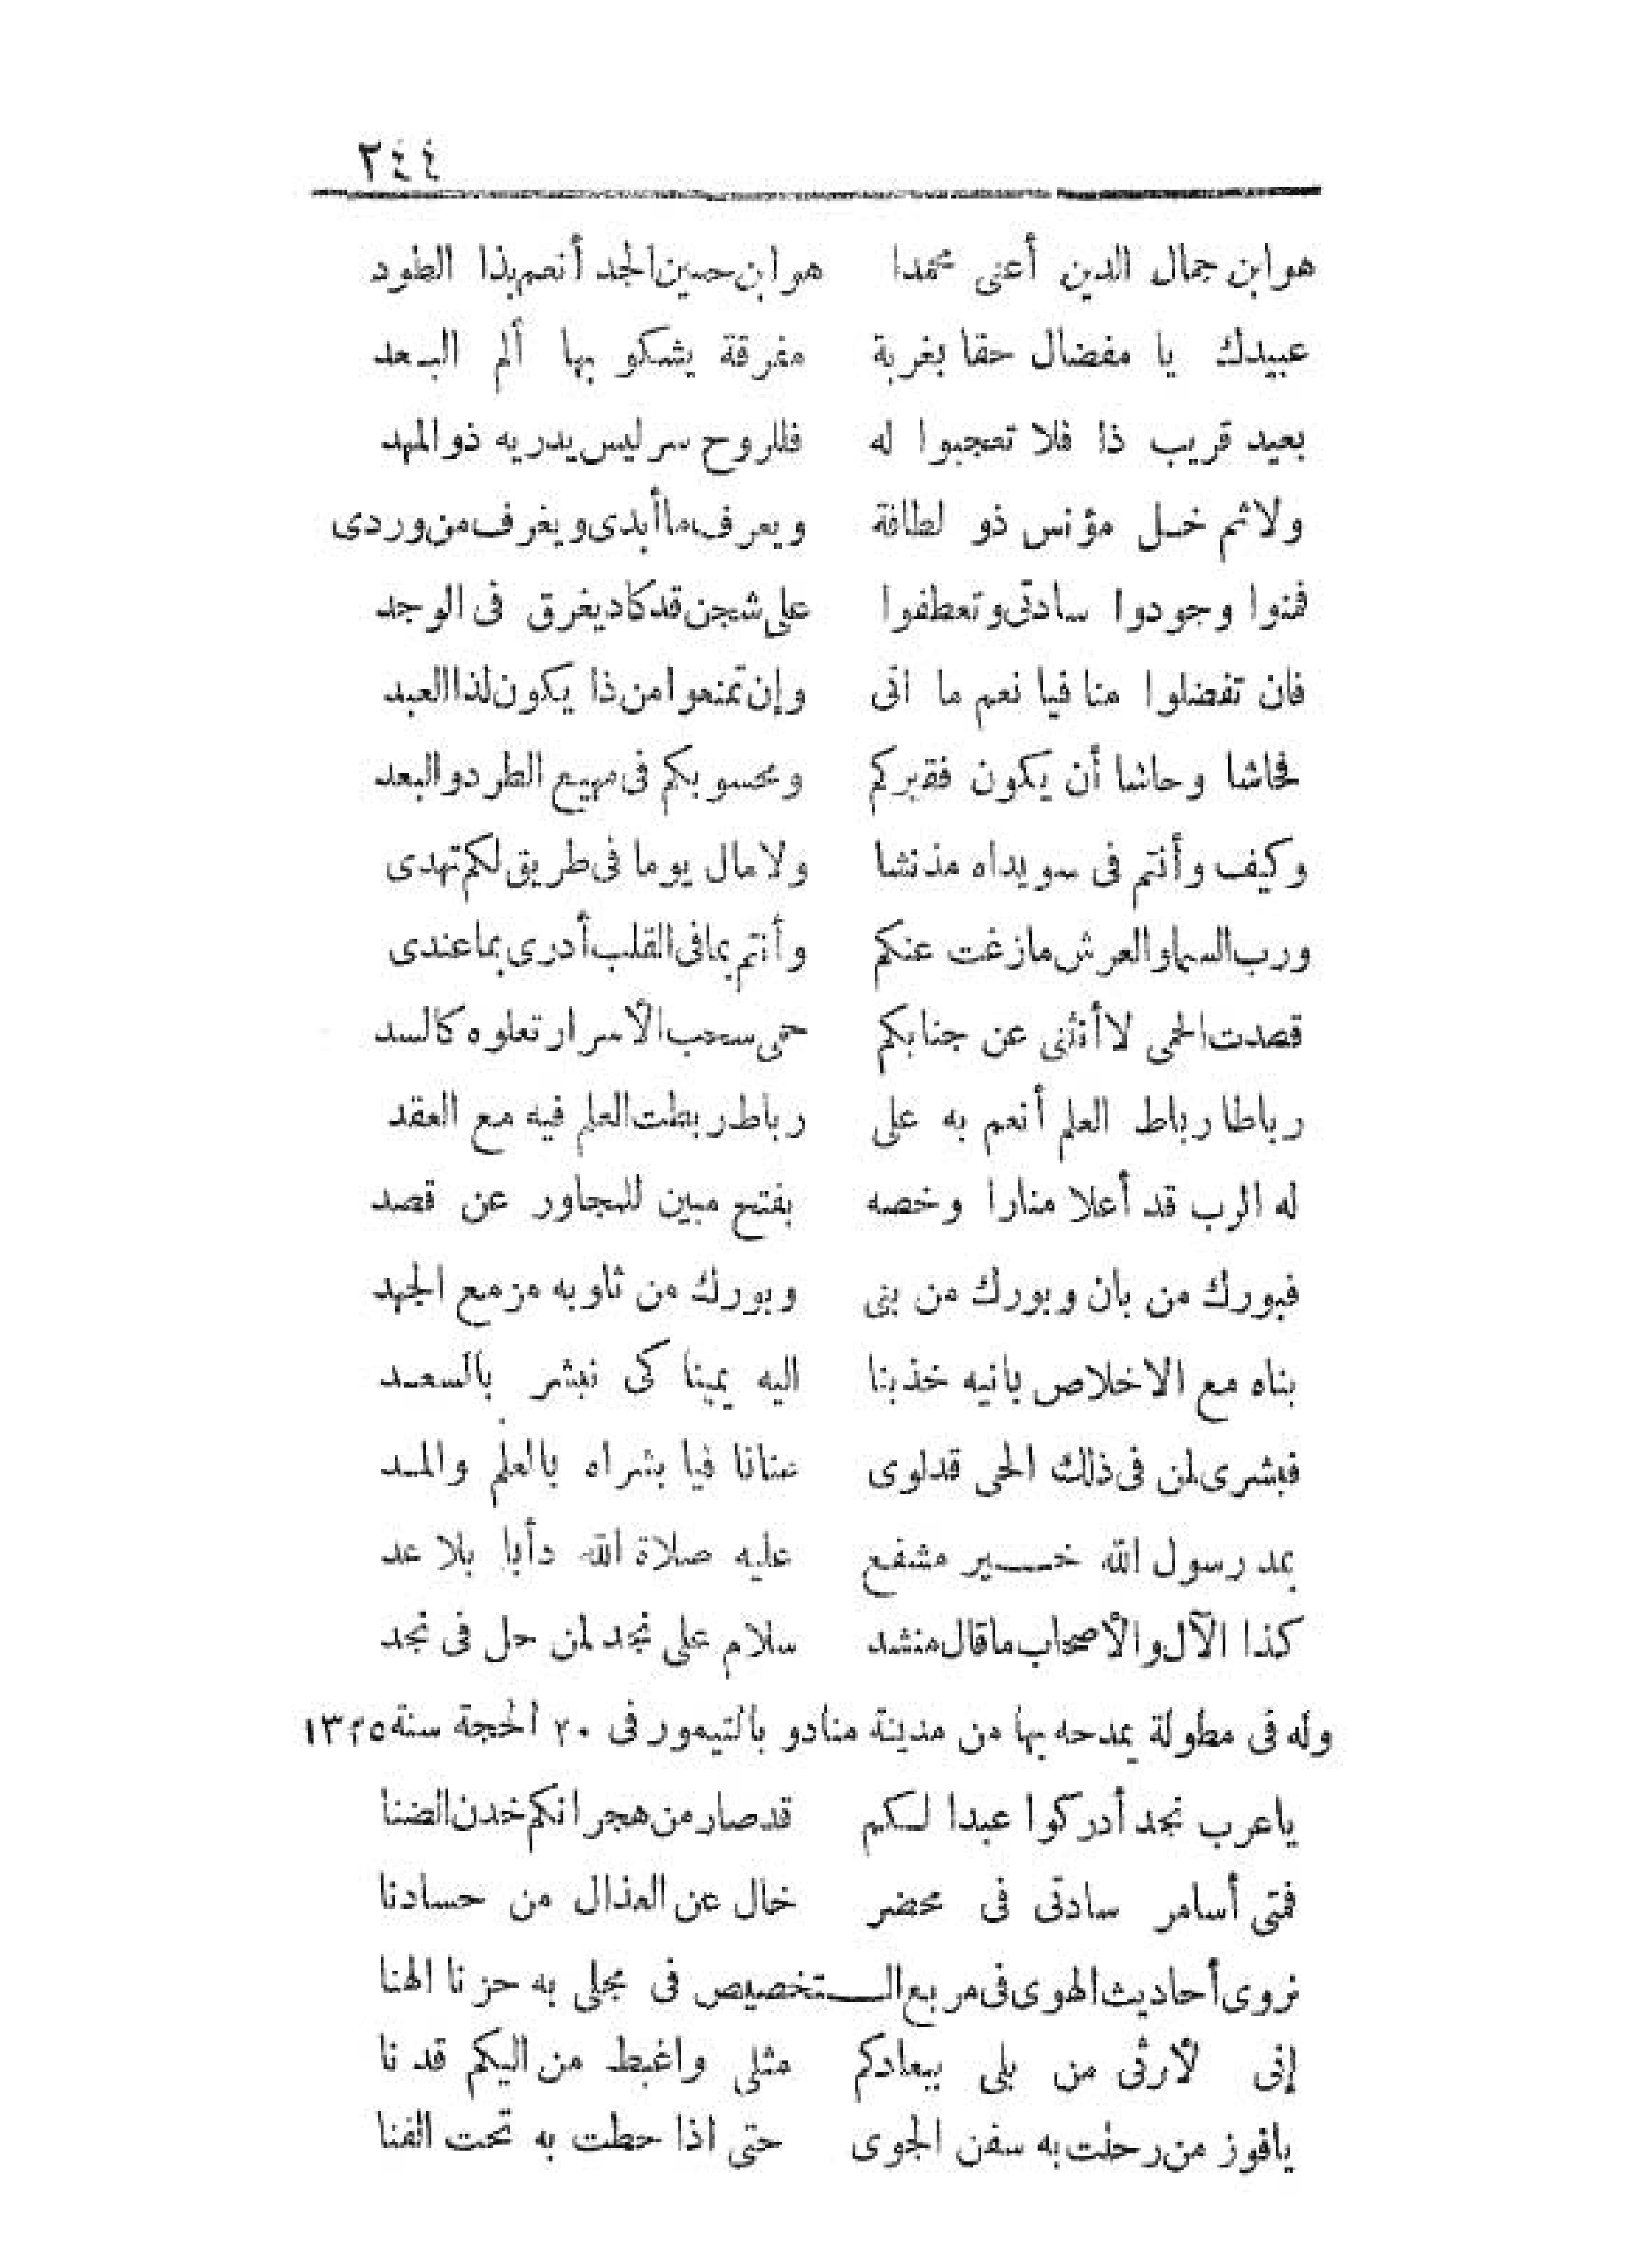 ٢٤٤
هو ابن جمال الدين أعنى محمدا هو ابن حسين الجد أنعم بذا الطود
عبيدك يا مفضال حقا بغربة مفرقة يشكو بها ألم البعد
بعيد قريب ذا فلا تعجبوا له فللروح سر ليس يدريه ذو المهد
ولا ثم خل مؤنس ذو لطافة ويعرف ما أبدى ويغرف من وردى
فمنوا وجودوا سادتى وتعطفوا على شجن قد كاد يغرق فى الوجد
فان تفضلوا منا فيا نعم ما اتى وإن تمنعوا من ذا يكون لذا العبد
فحاشا وحاشا أن يكون فقيركم ومحسوبكم فى مهيع الطرد والبعد
وكيف وأنتم فى سويداه مذ نشا ولا مال يوما فى طريق لكم تهدى
ورب السما والعرش ما زغت عنكم وأنتم بما فى القلب أدرى بما عندى
قصدت الحمى لا أنثنى عن جنابكم حمى سحب الأسرار تعلوه كالسد
رباطا رباط العلم أنعم به على رباط ربطت العلم فيه مع العقد
له الرب قد أعلا منارا وخصه بفتح مبين للمجاور عن قصد
فبورك من بان وبورك من بنى وبورك من ثاو به مزمع الجهد
بناه مع الاخلاص بانيه خذ بنا اليه يمينا كى نبشر بالسعد
فبشرى لمن فى ذلك الحى قد لوى عنانا فيا بشراه بالعلم والمد
بمد رسول الله خير مشفع عليه صلاة الله دأبا بلا عد
كذا الآل والأصحاب ما قال منشد سلام على نجد لمن حل فى نجد
وله فى مطولة يمدحه بها من مدينة منادو بالتيمور فى ٢٠ الحجة سنة ١٣٢٥
يا عرب نجد أدركوا عبدا لكم قد صار من هجرانكم خدن الضنا
فمتى أسامر سادتى فى محضر خال عن العذال من حسادنا
نروى أحاديث الهوى فى مربع التخصيص فى مجلى به حزنا الهنا
إنى لأرثى من بلى ببعادكم مثلى واغبط من اليكم قد نا
يا فوز من رحلت به سفن الجوى حتى اذا حطت به تحت الفنا